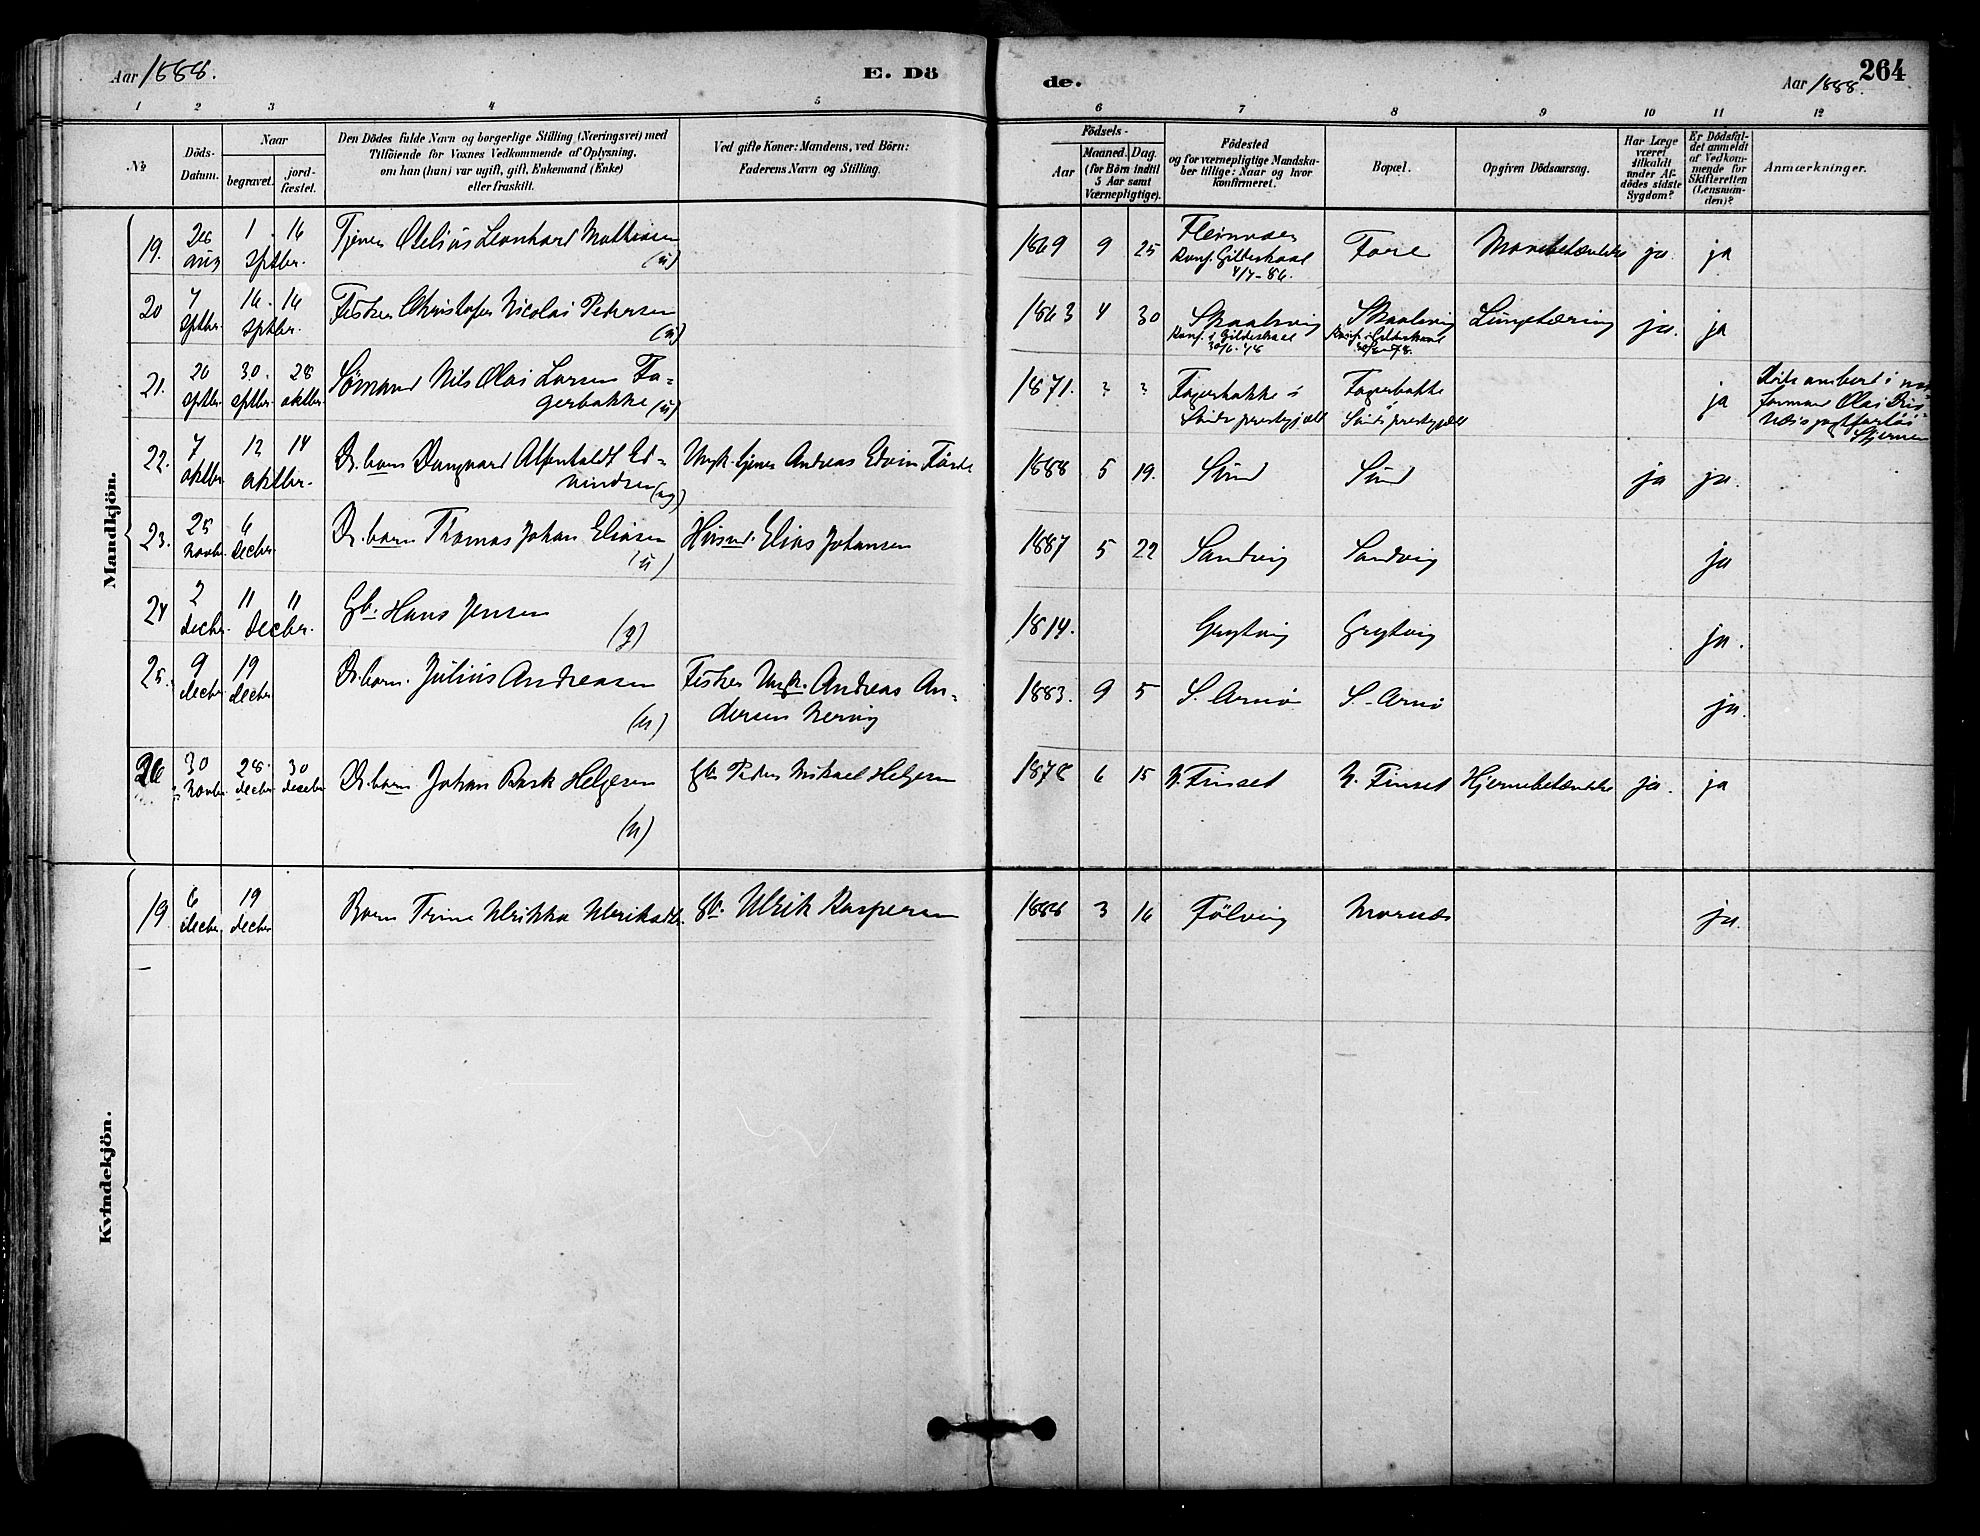 Aar 1888.
E. Dö
de.
Aar 1888.
264
1 2 3 4 5 6 7 8 9 10 11 12
No
Döds-
Datum.
Naar
begravet.
jord-
fæstet.
Den Dödes fulde Navn og borgerlige Stilling (Næringsvei) med
Tilföiende for Voxnes Vedkommende af Oplysning,
om han (hun) var ugift, gift, Enkemand (Enke)
eller fraskilt.
Ved gifte Koner: Mandens, ved Börn:
Faderens Navn og Stilling.
Födsels-
Aar
Maaned.
Dag.
(for Börn indtil
5 Aar samt
Værnepligtige).
Födested
og for værnepligtige Mandska-
ber tillige: Naar og hvor
konfirmeret.
Bopæl.
Opgiven Dödsaarsag.
Har Læge
været
tilkaldt
under Af-
dödes sidste
Sygdom?
Er Dödsfal-
det anmeldt
af Vedkom-
mende for
Skifteretten
(Lensman-
den)?
Anmærkninger.
Mandkjön.
19. 26 aug 1 16 sptbr. Tjener Otelius Leonhard Mathiasen (ú) 1869 9 25 Fleinvær Konf. Gildeskaal 4/7-86. Fore Mavebetændelse ja. ja
20 7 sptbr. 16. 16 sptbr. Fisker Christofer Nicolai Pedersen (ú) 1863 4 30 Skaalsvig Konf. i Gildeskaal 30/6-78 Skaalsvig Konf. i Gildeskaal 30/6-78. Lungetæring ja. ja
21. 20 sptbr. 30. sptbr. 28 oktbr. Sömand Nils Olai Larsen Fa-
gerbakke (ú) 1871. ? ? Fagerbakke i Sunds prestegjæld Fagerbakke i Sunds prestegjæld ja
22. 7 oktbr. 12 14 oktbr. Dr. barn Dangvard Alfentaldt Ed-
vindsen (ug) Ungk. tjener Andreas Edvin 1888 5 19. Sund Sund ja ja.
23. 25 novbr. 6 decbr. Dr. barn Thomas Johan Eliasen (ú) Husmd. Elias Johansen 1887 5 22 Sandvig Sandvig ja
24 2 decbr. 11 11 decbr. Gbr. Hans Jensen (g) 1814. Grytvig Grytvig ja.
25. 9 decbr. 19 decbr. Dr. barn. Julius Andreasen (ú) Fisker Ungk. Andreas An-
dersen Nervig 1883. 9 5 S. Arnö S. Arnö ja.
26 30 novbr. 28. decbr. 30 decbr Dr. barn Johan Bark Helgesen (ú) Gbr Peder Mikael Helgesen 1878 6 15 N. Finset N. Finset Hjernebetændelse ja. ja
Kvindekjön.
19. 6 decbr. 19 decbr Barn Trine Ulrikka Ulriksdtr. Gbr. Ulrik Kaspersen 1888 3 16 Fölvig Marnæs ja.